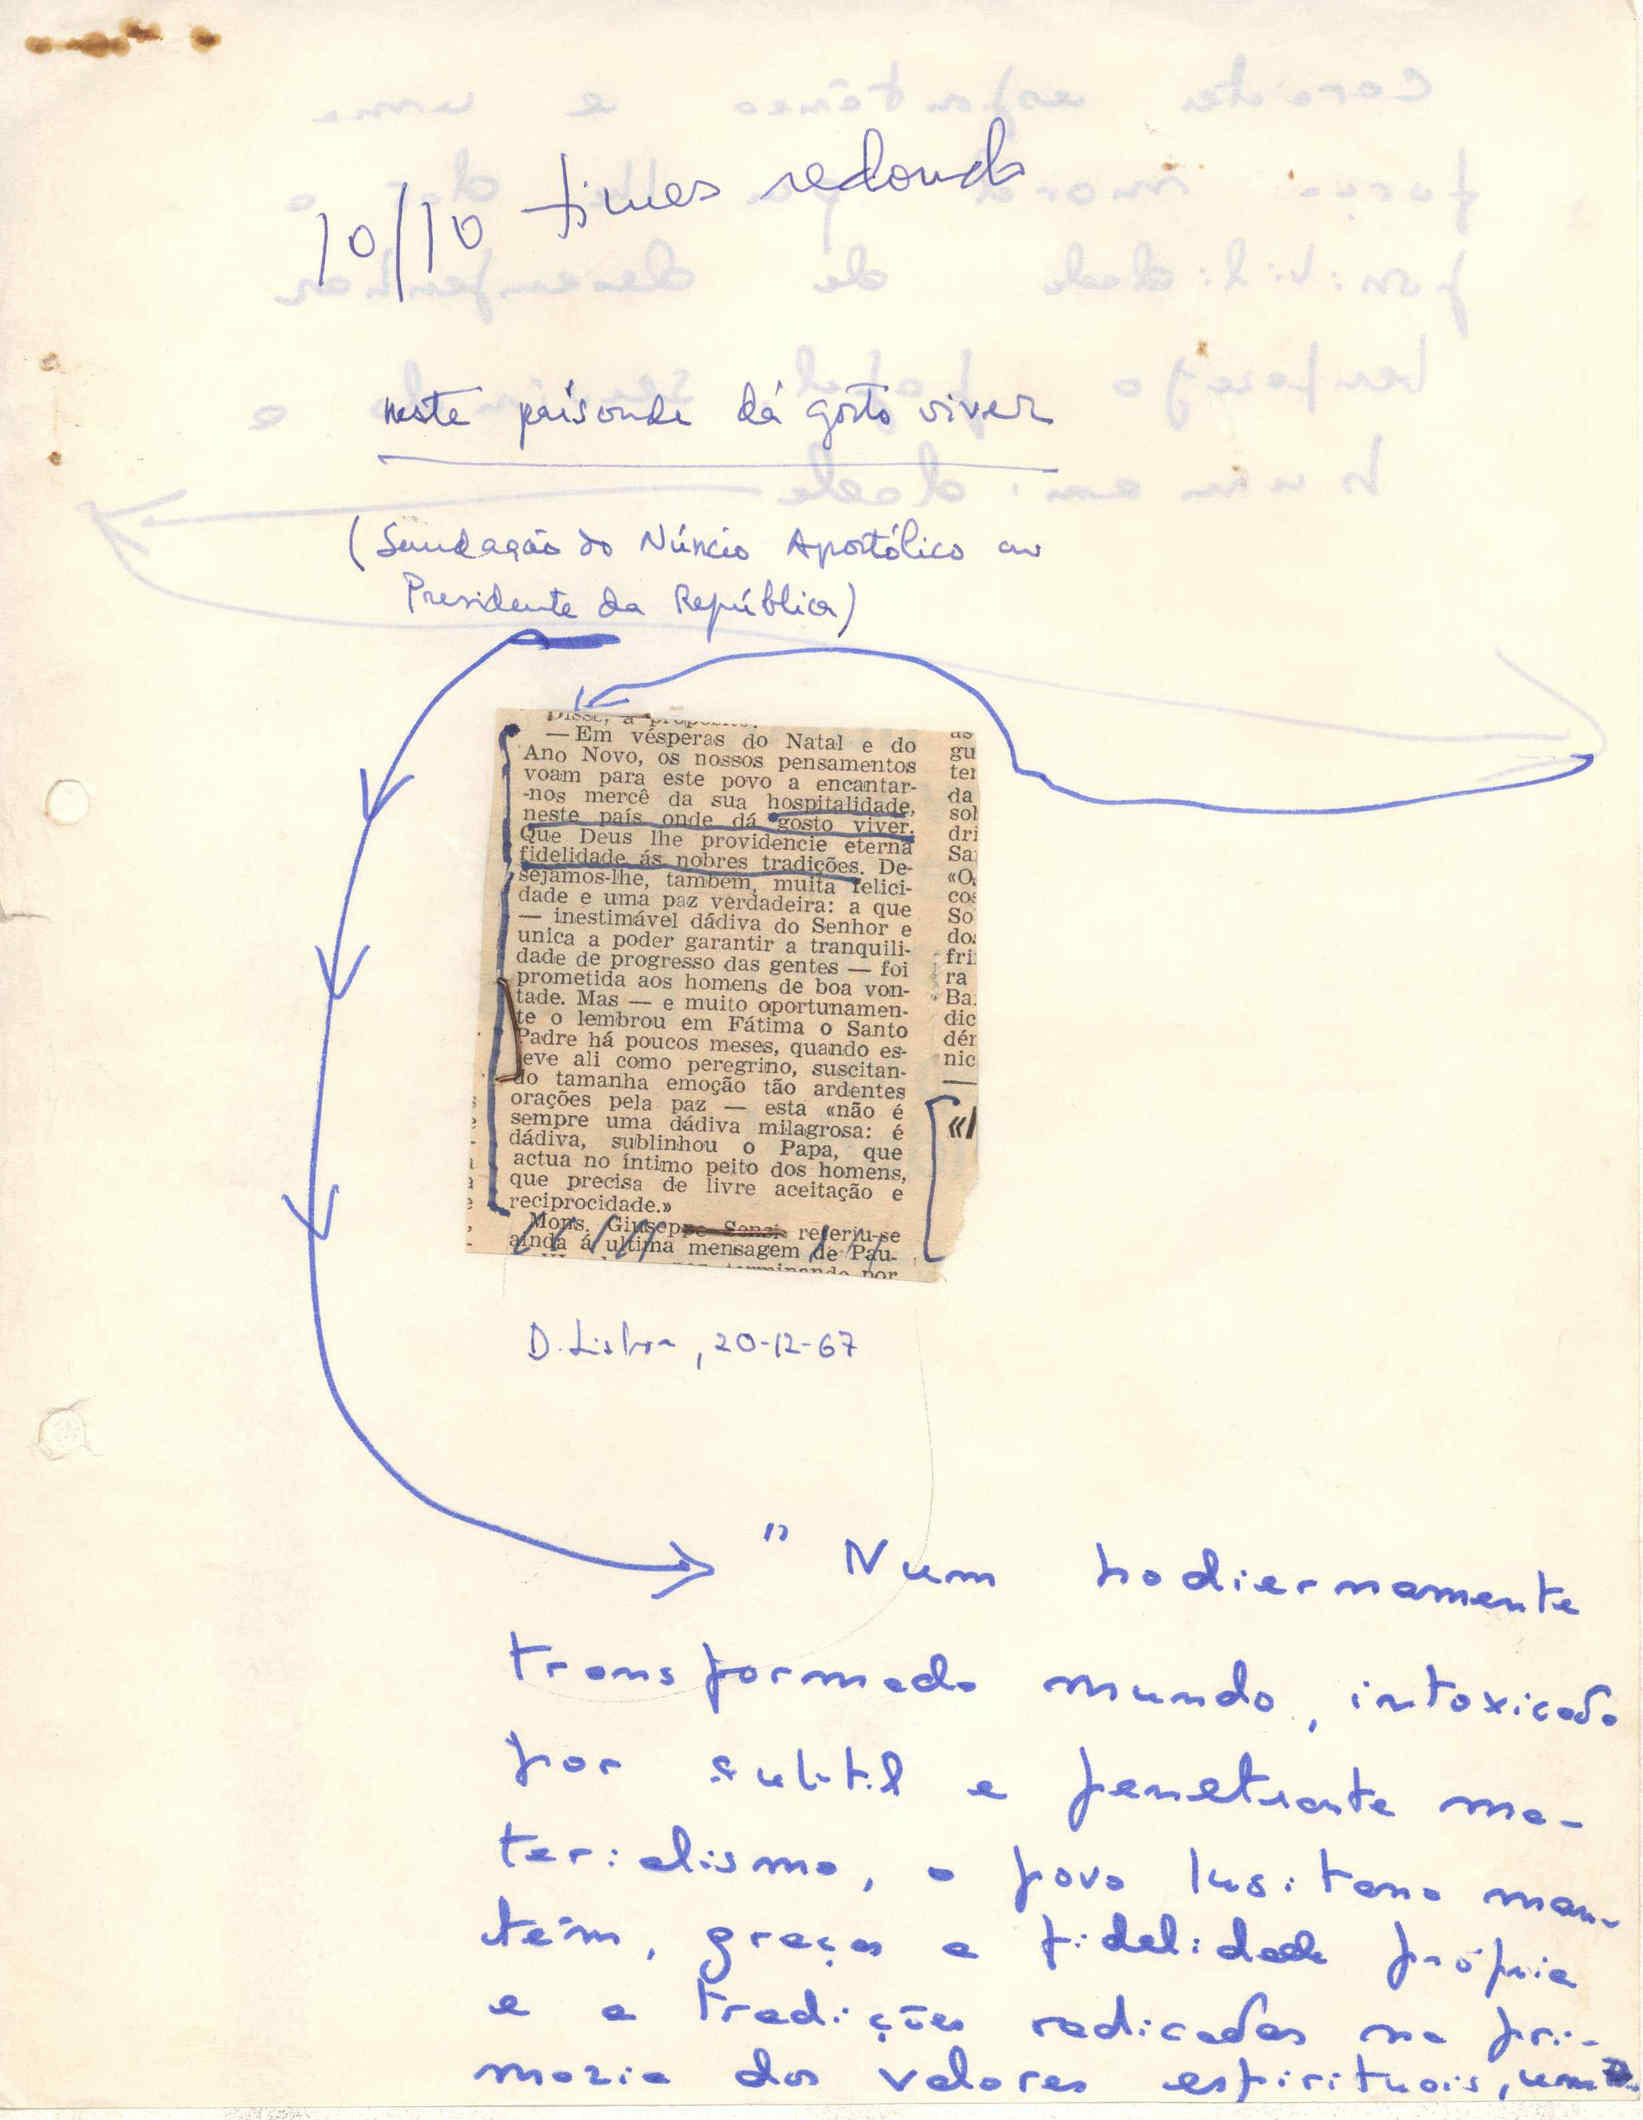 10/10 times redondo
neste país onde dá gosto viver
(Saudação do Núncio Apostólico ao
Presidente da República)
Disse, a propósito:
— Em vésperas do Natal e do
Ano Novo, os nossos pensamentos
voam para este povo a encantar-
-nos mercê da sua hospitalidade,
neste país onde dá gosto viver.
Que Deus lhe providencie eterna
fidelidade ás nobres tradições. De-
sejamos-lhe, também, muita felici-
dade e uma paz verdadeira: a que
— inestimável dádiva do Senhor e
unica a poder garantir a tranquili-
dade de progresso das gentes — foi
prometida aos homens de boa von-
tade. Mas — e muito oportunamen-
te o lembrou em Fátima o Santo
Padre há poucos meses, quando es-
teve ali como peregrino, suscitan-
do tamanha emoção tão ardentes
orações pela paz — esta «não é
sempre uma dádiva milagrosa: é
dádiva, sublinhou o Papa, que
actua no íntimo peito dos homens,
que precisa de livre aceitação e
reciprocidade.»
Mons. Giuseppe Sensi referiu-se
ainda á ultima mensagem de Pau-
terminando por
as
gu
ter
da
sol
dri
Sa
«O
cos
So
dos
fri
ra
Ba
dic
dér
nic
D. Lisboa, 20-12-67
" Num hodiernamente
transformado mundo, intoxicado
por subtil e penetrante ma-
terialismo, o povo lusitano man-
tém, graças a fidelidade própria
e a tradições radicadas na pri-
mazia dos valores espirituais, um
caracter espontâneo e uma
força moral que lhe dão a
possibilidade de desempenhar
humanidade